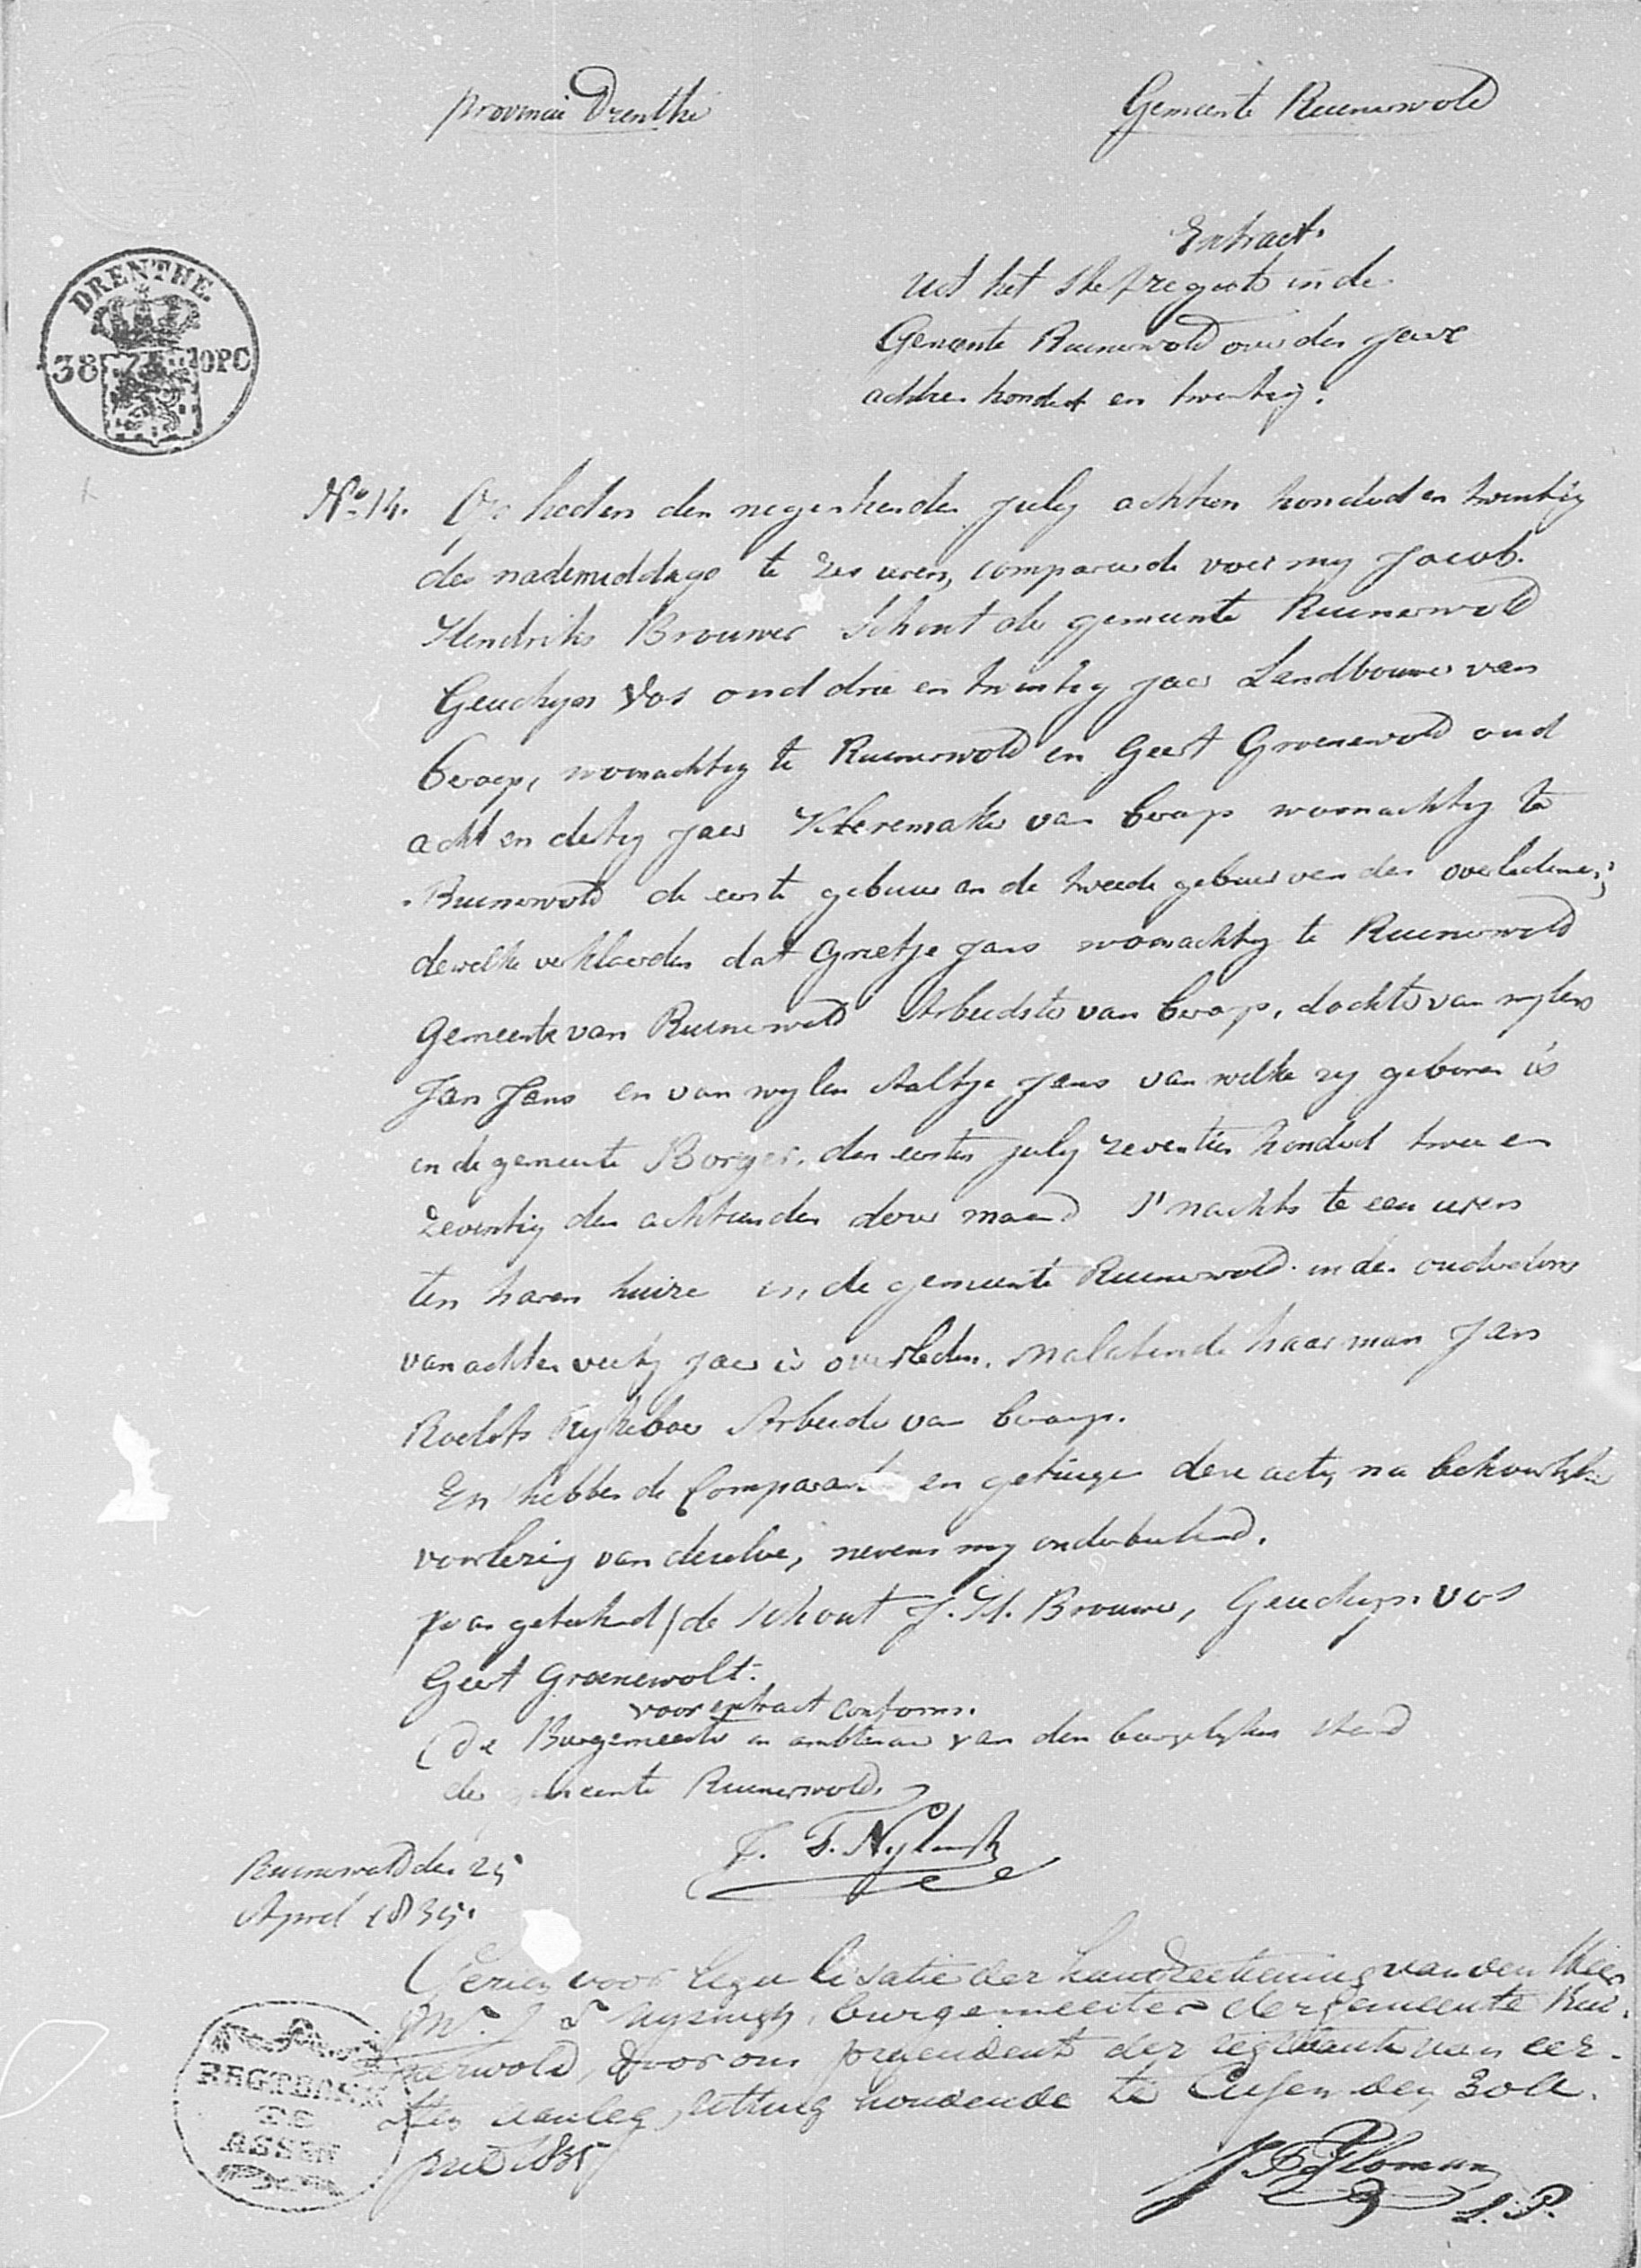 provincie Drenthe
Gemeente Ruinerwold
Extract.
uit het sterfregister in de
Gemeente Ruinerwold over den Jare
achtien honderd en twintig.
DRENTHE.
38 OPC
No. 14. Op heden den negentienden July achtien honderd en twintig
des nademiddags te zes uren, compareerde voor my Jacob
Hendriks Brouwer Schout der gemeente Ruinerwold
Geuchyen Vos oud drie en twintig jaar Landbouwer van
beroep, woonachtig te Ruinerwold en Geert Groenewold oud
acht en dertig jaar Kleremaker van beroep woonachtig te
Ruinerwold de eerste gebuur en de tweede gebuur van den overledene;
dewelke verklaarden dat Grietje Jans woonachtig te Ruinerwold
Gemeente van Ruinerwold Arbeidster van beroep, dochter van wylen
Jan Jans en van wylen Aaltje Jans van welke zy geboren is
in de gemeente Borger, den eersten July zeventien honderd twee en
zeventig den achttienden dezer maand s'nachts te een uren
ten haren huize in de gemeente Ruinerwold in den ouderdom
van acht en veertig jaar is overleden. Nalatende haar man Jan
Roelofs Arbeider van beroep.
En hebben de Comparanten en getuigen deze acte, na behoorlyke
voorlezing van dezelve, nevens my onderteekend.
was geteekend / de Schout J. H. Brouwer, Geuchyen Vos
Geert Groenewolt.
voor extract conform.
De Burgemeester en ambtenaar van den burgelyken stand
der gemeente Ruinerwold.
Ruinerwold den 25
April 1835.
Gezien voor legalisatie der handteekening van den Heer
Mr. burgemeester der gemeente Rui-
nerwold, door ons president der regtbank van eer-
sten aanleg, zitting houdende te Assen den 30 A-
pril 1835
REGTBANK
TE
ASSEN
L. P.